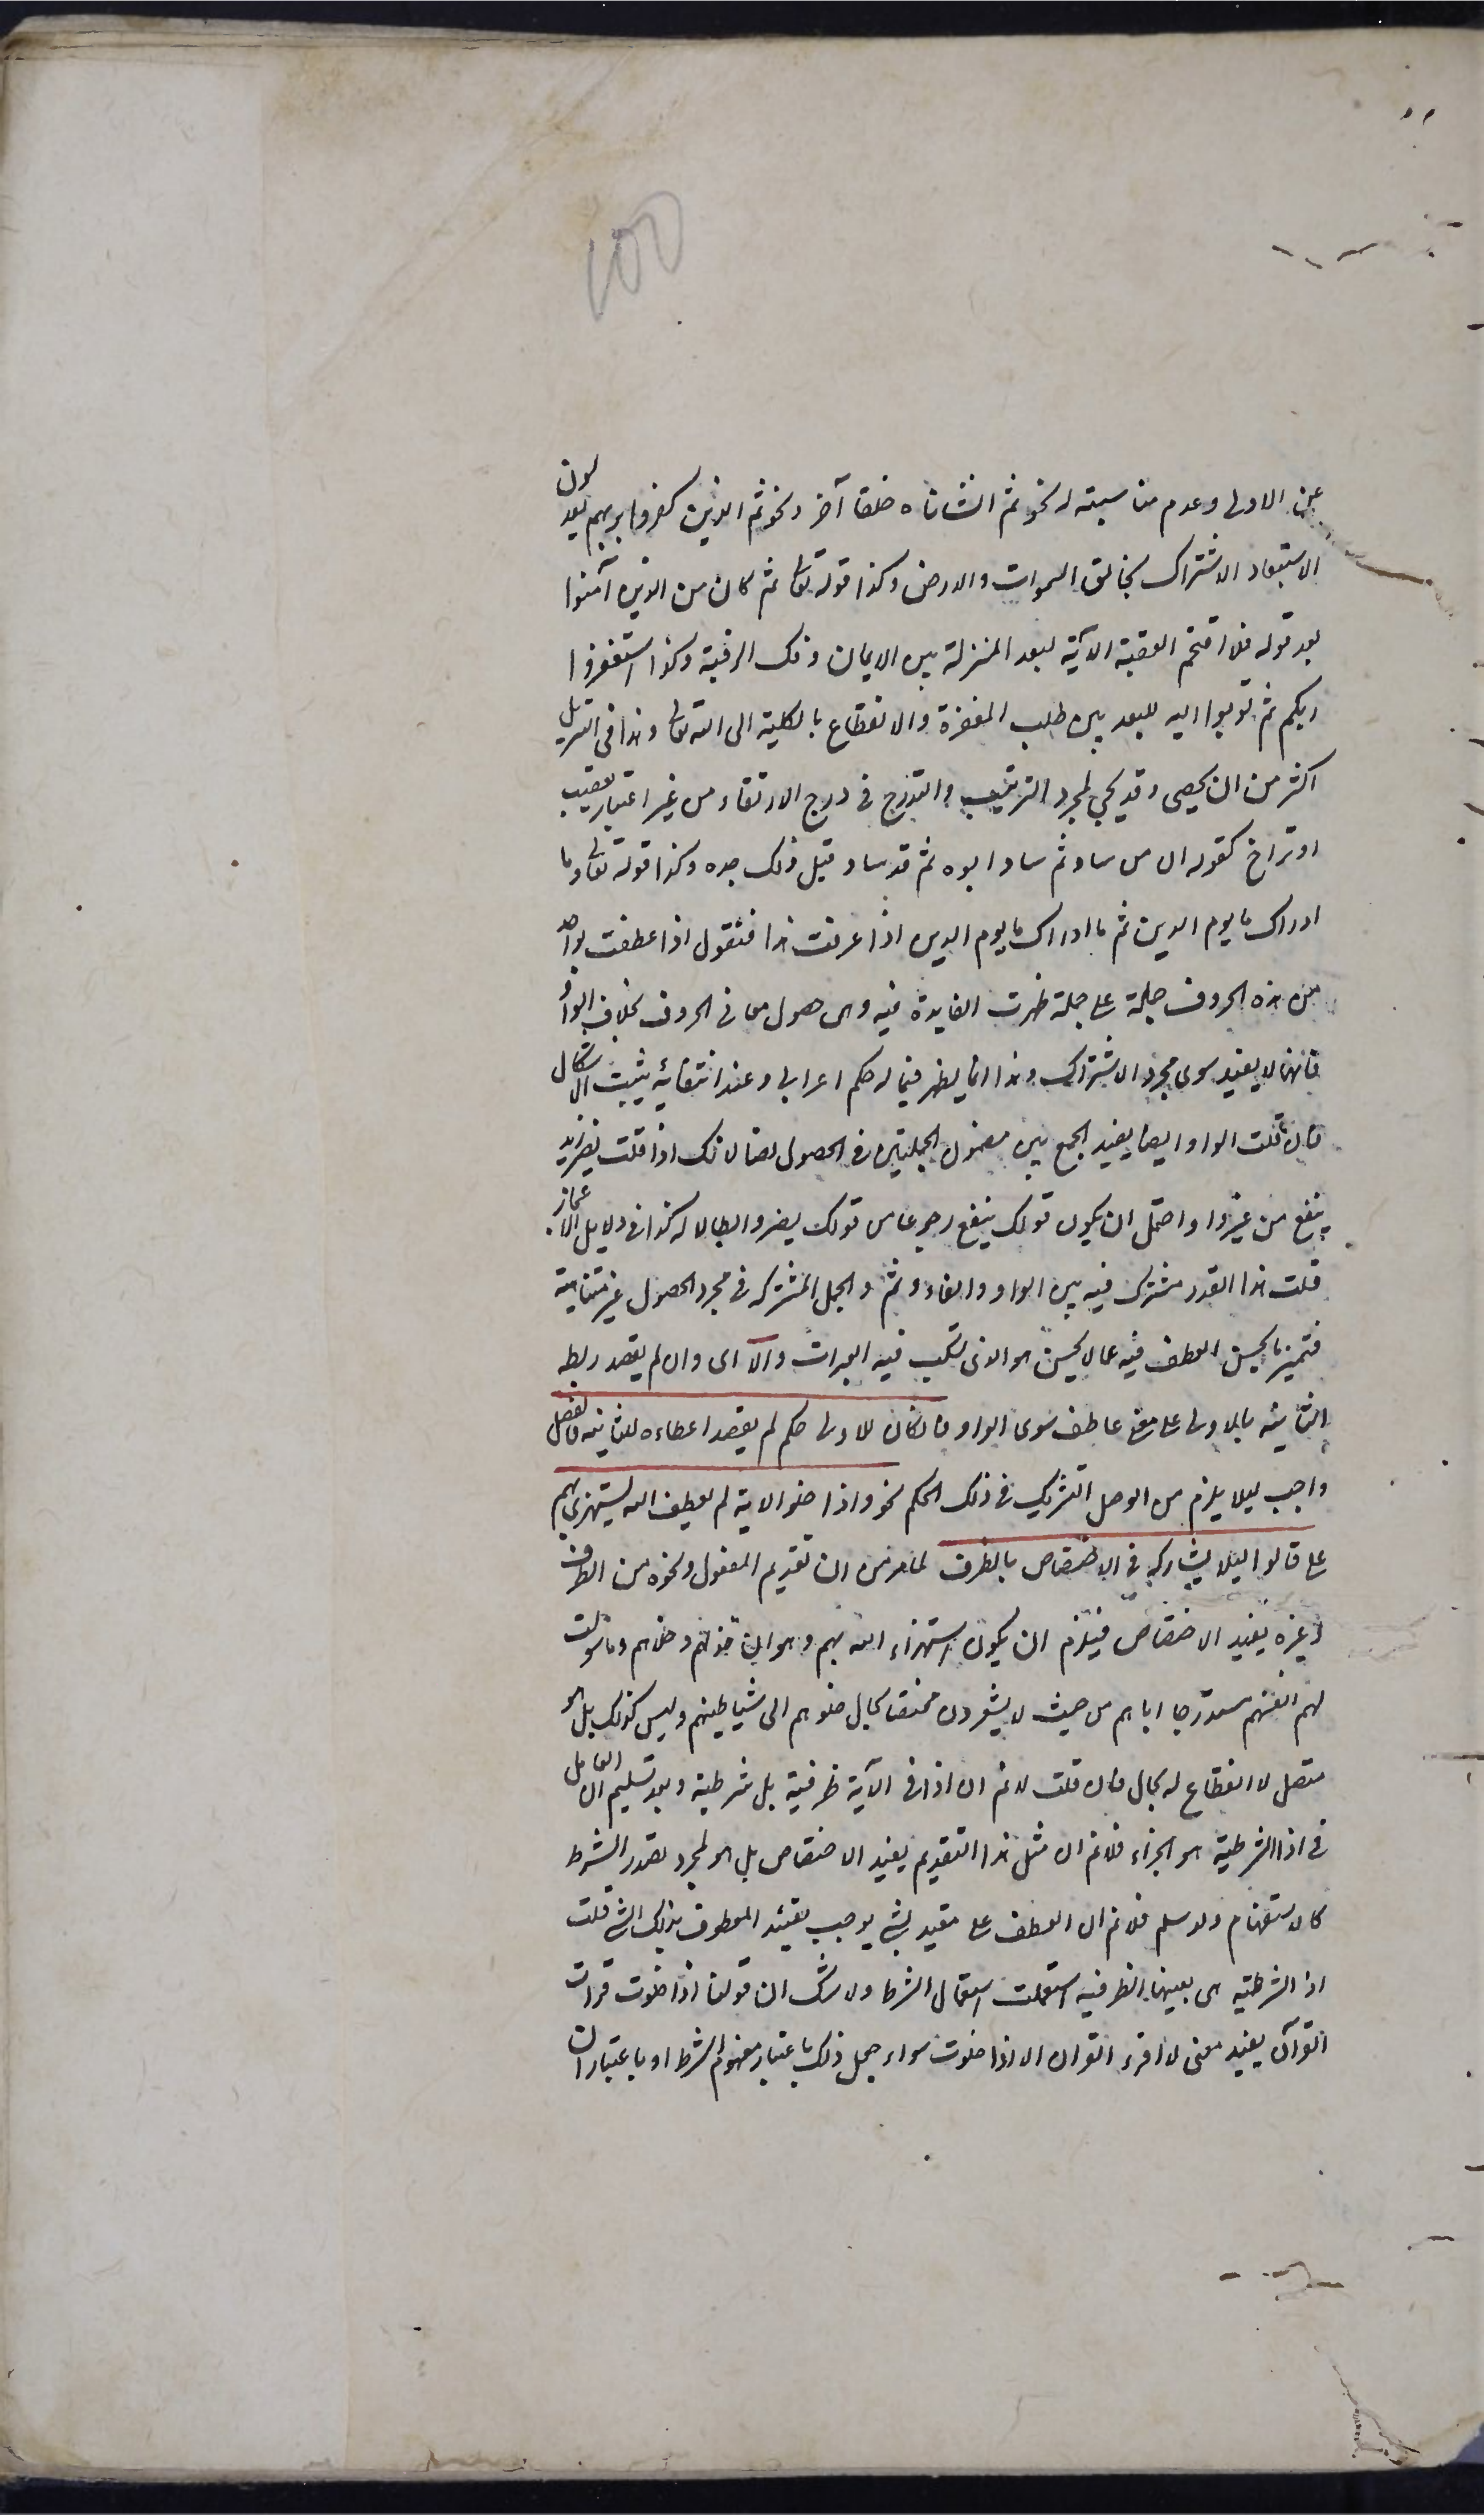 100
عن الاولى وعدم مناسبته له نحو ثم انشاناه خلقا آخر ونحو ثم الذين كفروا بربهم يعدلون
لاستبعاد الاشراك بخالق السموات والارض وكذا قوله تعالى ثم كان من الذين آمنوا
بعد قوله فلا اقتحم العقبة الآية لبعد المنزلة بين الايمان وفك الرقبة وكذا استغفروا
ربكم ثم توبوا اليه للبعد بين طلب المغفرة والانقطاع بالكلية الى الله تعالى وهذا فى التنزيل
اكثر من ان يحصى وقد يجئ لمجرد الترتيب والتدرج فى درج الارتقاء من غير اعتبار تعقيب
او تراخ كقوله ان من ساد ثم ساد ابوه ثم قد ساد قبل ذلك جده وكذا قوله تعالى وما
ادراك ما يوم الدين ثم ما ادراك ما يوم الدين اذا عرفت هذا فنقول اذا عطفت بواحد
من هذه الحروف جملة على جملة ظهرت الفايدة فيه وهى حصول معانى الحروف بخلاف الواو
فانها لا يفيد سوى مجرد الاشتراك وهذا انما يظهر فيما له حكم اعرابى وعند انتفائه يثبت الاشكال
فان قلت الواو ايضا يفيد الجمع بين مضمون الجملتين فى الحصول نصا لانك اذا قلت يضر زيد
ينفع من غير واو احتمل ان يكون قولك ينفع رجوعا من قولك يضر وابطالا له كذا فى دلايل الاعجاز
قلت هذا القدر مشترك فيه بين الواو والفاء وثم والجمل المشتركة فى مجرد الحصول غير متناهية
فتميز ما يحسن العطف فيه عما لا يحسن هو الذى تسكب فيه العبرات والا اى وان لم يقصد ربط
الثانية بالاولى على معنى عاطف سوى الواو فان كان للاولى حكم لم يقصد اعطاءه للثانية فالفصل
واجب ليلا يلزم من الوصل التشريك فى ذلك الحكم نحو واذا خلوا الاية لم يعطف الله يستهزئ بهم
على قالوا ليلا يشاركه فى الاختصاص بالظرف لما مر من ان تقديم المفعول ونحوه من الظرف
وغيره يفيد الاختصاص فيلزم ان يكون استهزاء الله بهم وهو ان خذلهم وخلاهم وما سولت
لهم انفسهم مستدرجا اياهم من حيث لا يشعرون مختصا بحال خلوهم الى شياطينهم وليس كذلك بل هو
متصل لا انقطاع له بحال فان قلت لا نم ان اذا فى الآية ظرفية بل شرطية وبعد تسليم ان العامل
فى اذا الشرطية هو الجزاء فلا نم ان مثل هذا التقديم يفيد الاختصاص بل هو لمجرد تصدر الشرط
كالاستفهام ولو سلم فلا نم ان العطف على مقيد بشئ يوجب تقييد المعطوف بذلك الشئ قلت
اذا الشرطية هى بعينها الظرفية استعملت استعمال الشرط ولا شك ان قولنا اذا خلوت قرات
القرآن يفيد معنى لا اقرء القران الا اذا خلوت سواء جعل ذلك باعتبار مفهوم الشرط او باعتبار ان